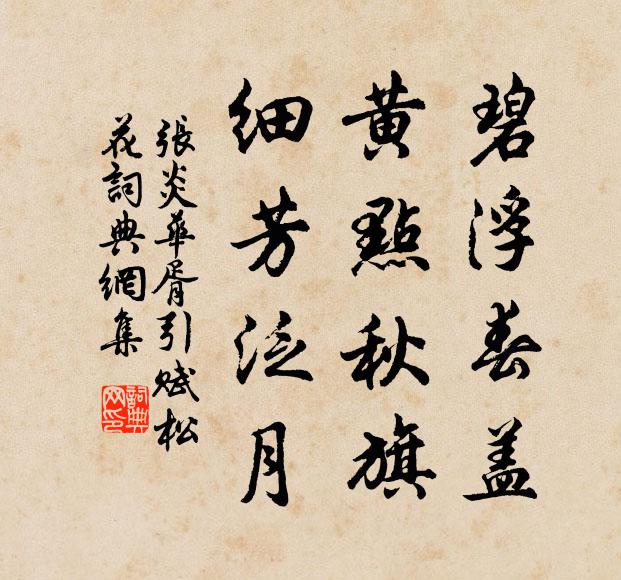 碧浮春盖
黄點秋旗
细芳泛月
張炎華胥引賦松
花詞典網集
詞典网印